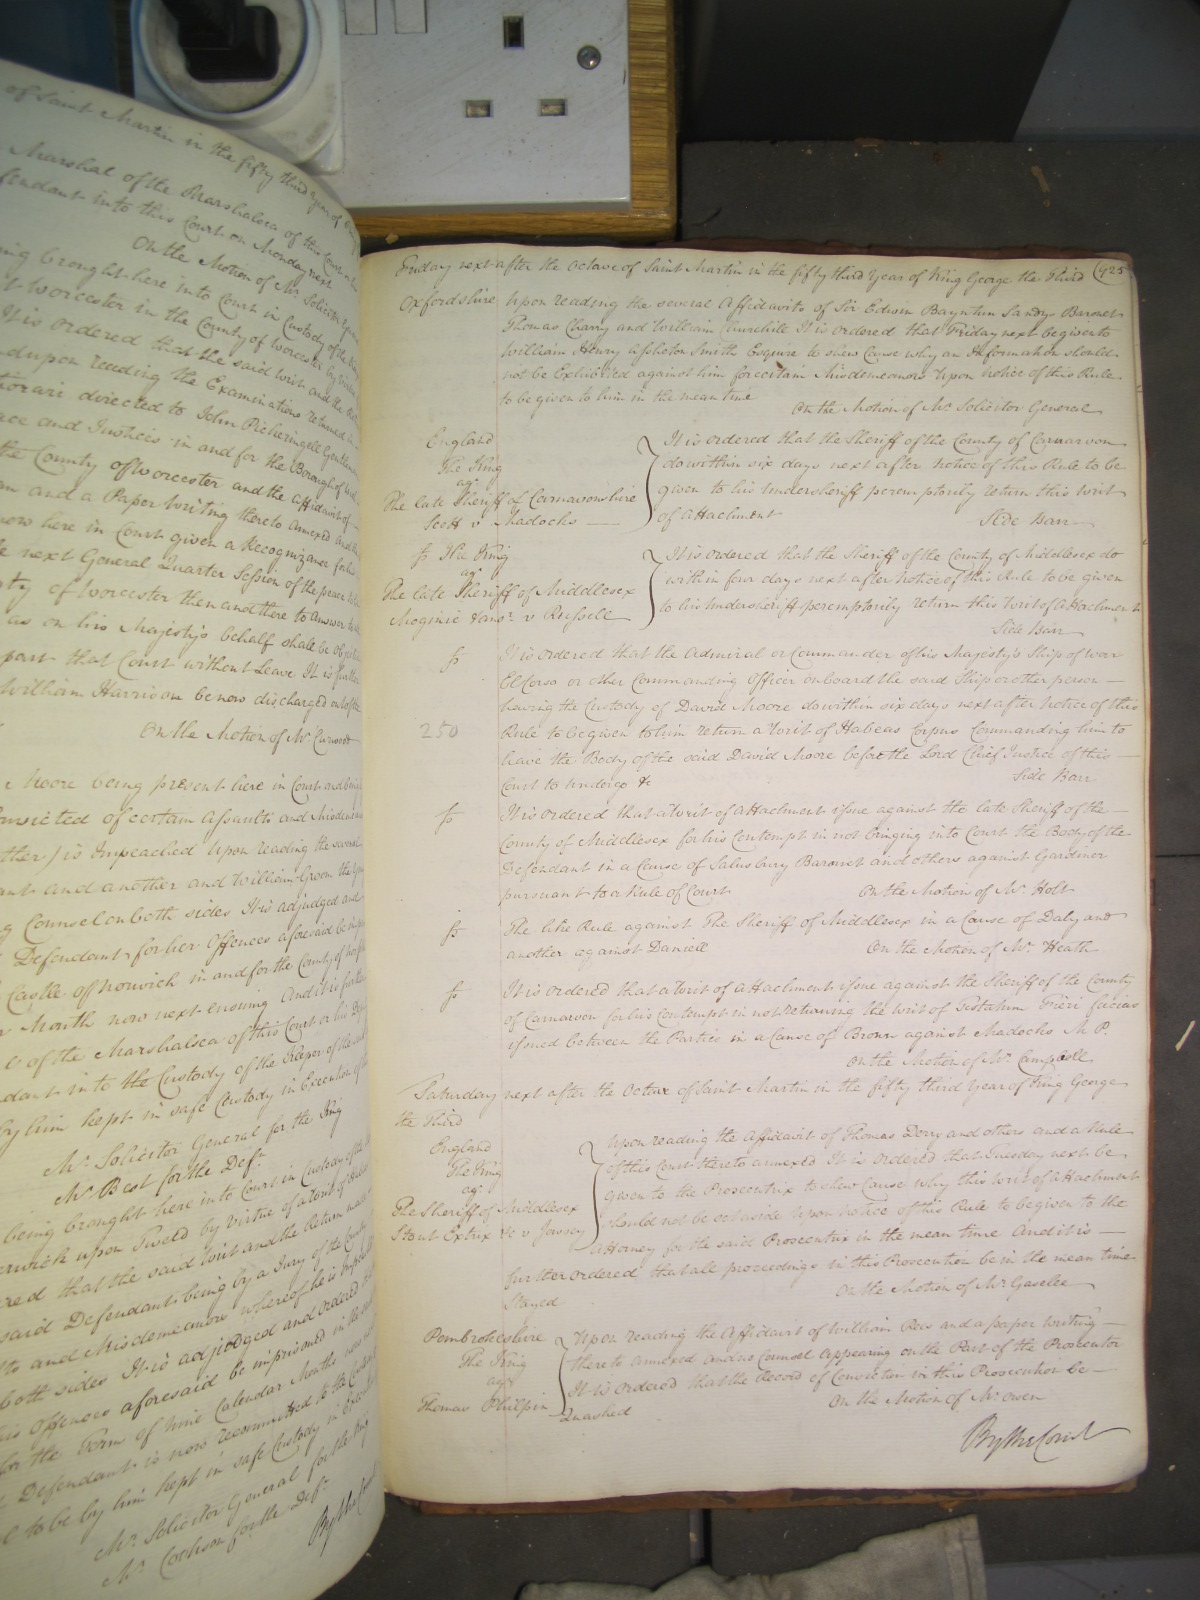 of Saint Martin in the fifty third Year of
Marshal of the Marshalsea of this Court
fendant into this Court on Monday next
On the Motion of Mr. Solicitor
ing brought here into Court in Custody of the
Worcester in the County of Worcester by
It is ordered that the said Writ and the
upon reading the Examinations returned
tiorari directed to John Pickeringell Gentleman
ace and Justices in and for the Borough of
the County of Worcester and the Affidavit of
and a Paper Writing thereto annexed
now here in Court given a Recognizance for his
next General Quarter Session of the peace
ty of Worcester then and there to answer
as on his Majesty's behalf shall be
part that Court without Leave It is further
William Harrison be now discharged out of the
On the Motion of Mr. Curwood
Moore being present here in Court and being
onvicted of certain Assaults and Misdem
ther) is Impeached Upon reading the several
ant and another and William Groom the
Counsel on both sides It is adjudged and
Defendant for her Offences aforesaid be
Castle of Norwich in and for the County of
Month now next ensuing And it is further
of the Marshalsea of this Court or his
dant in to the Custody of the Keeper of the
by him kept in safe Custody in Execution of
Mr. Solicitor General for the King
Mr. Best for the Deft.
being brought here into Court in Custody of the
erwick upon Tweed by virtue of a Writ of
red that the said Writ and the Return
said Defendant being by a Jury of the County
and Misdemeanors whereof he is Impeached
both sides It is adjudged and Ordered
his Offences aforesaid be imprisoned in the
for the Term of nine Calendar Months now
Defendant is now recommitted to the Custody
to be by him kept in safe Custody in
Mr. Solicitor General for the King
Mr. Cookson for the Deft.
By the Court
Friday next after the Octave of Saint Martin in the fifty third Year of King George the Third (925
Oxfordshire Upon reading the several Affidavits of Sir Edwin Bayntun Sandys Baronet
Thomas Charry and William Churchill It is ordered that Friday next be given to
William Henry Assheton Smith Esquire to shew Cause why an Information should
not be Exhibited against him for certain Misdemeanors Upon notice of this Rule
to be given to him in the mean time
On the Motion of Mr. Solicitor General
England
The King
agt.
The late Sheriff of Carnarvonshire
Scott v Madocks
It is ordered that the Sheriff of the County of Carnarvon
do within six days next after notice of this Rule to be
given to his Undersheriff peremptorily return this Writ
of Attachment
Side Barr
fs The King
agt.
The late Sheriff of Middlesex
Moginie v Russell
It is ordered that the Sheriff of the County of Middlesex do
within four days next after notice of this Rule to be given
to his Undersheriff peremptorily return this Writ of Attachment
Side Barr
fs It is ordered that the Admiral or Commander of his Majesty's Ship of war
El Corso or other Commanding Officer on board the said Ship or other person
having the Custody of David Moore do within six days next after notice of this
250 Rule to be given to him return a Writ of Habeas Corpus Commanding him to
have the Body of the said David Moore before the Lord Chief Justice of this
Court to undergo &c
Side Barr
fs It is ordered that a Writ of Attachment issue against the late Sheriff of the
County of Middlesex for his Contempt in not bringing into Court the Body of the
Defendant in a Cause of Salusbury Baronet and others against Gardiner
pursuant to a Rule of Court On the Motion of Mr. Holt
fs The like Rule against The Sheriff of Middlesex in a Cause of Daly and
another against Daniell On the Motion of Mr. Heath
fs It is ordered that a Writ of Attachment issue against the Sheriff of the County
of Carnarvon for his Contempt in not returning the Writ of Testatum Fieri facias
issued between the Parties in a Cause of Brown against Madocks M. P.
On the Motion of Mr. Campbell
Saturday next after the Octave of Saint Martin in the fifty third Year of King George
the Third
England
The King
agt.
The Sheriff of Middlesex
Stout Extrix &c v Jowsey
Upon reading the Affidavit of Thomas and others and a Rule
of this Court thereto annexed It is ordered that Tuesday next be
given to the Prosecutrix to shew Cause why this Writ of Attachment
should not be set aside Upon notice of this Rule to be given to the
Attorney for the said Prosecutrix in the mean time And it is
further ordered that all proceedings in this Prosecution be in the mean time
Stayed
On the Motion of Mr. Gaselee
Pembrokeshire
The King
agt.
Thomas Philpin
Upon reading the Affidavit of William Rees and a paper writing
thereto annexed and no Counsel appearing on the Part of the Prosecutor
It is Ordered that the Record of Conviction in this Prosecution be
Quashed
On the Motion of Mr. Owen
By the Court